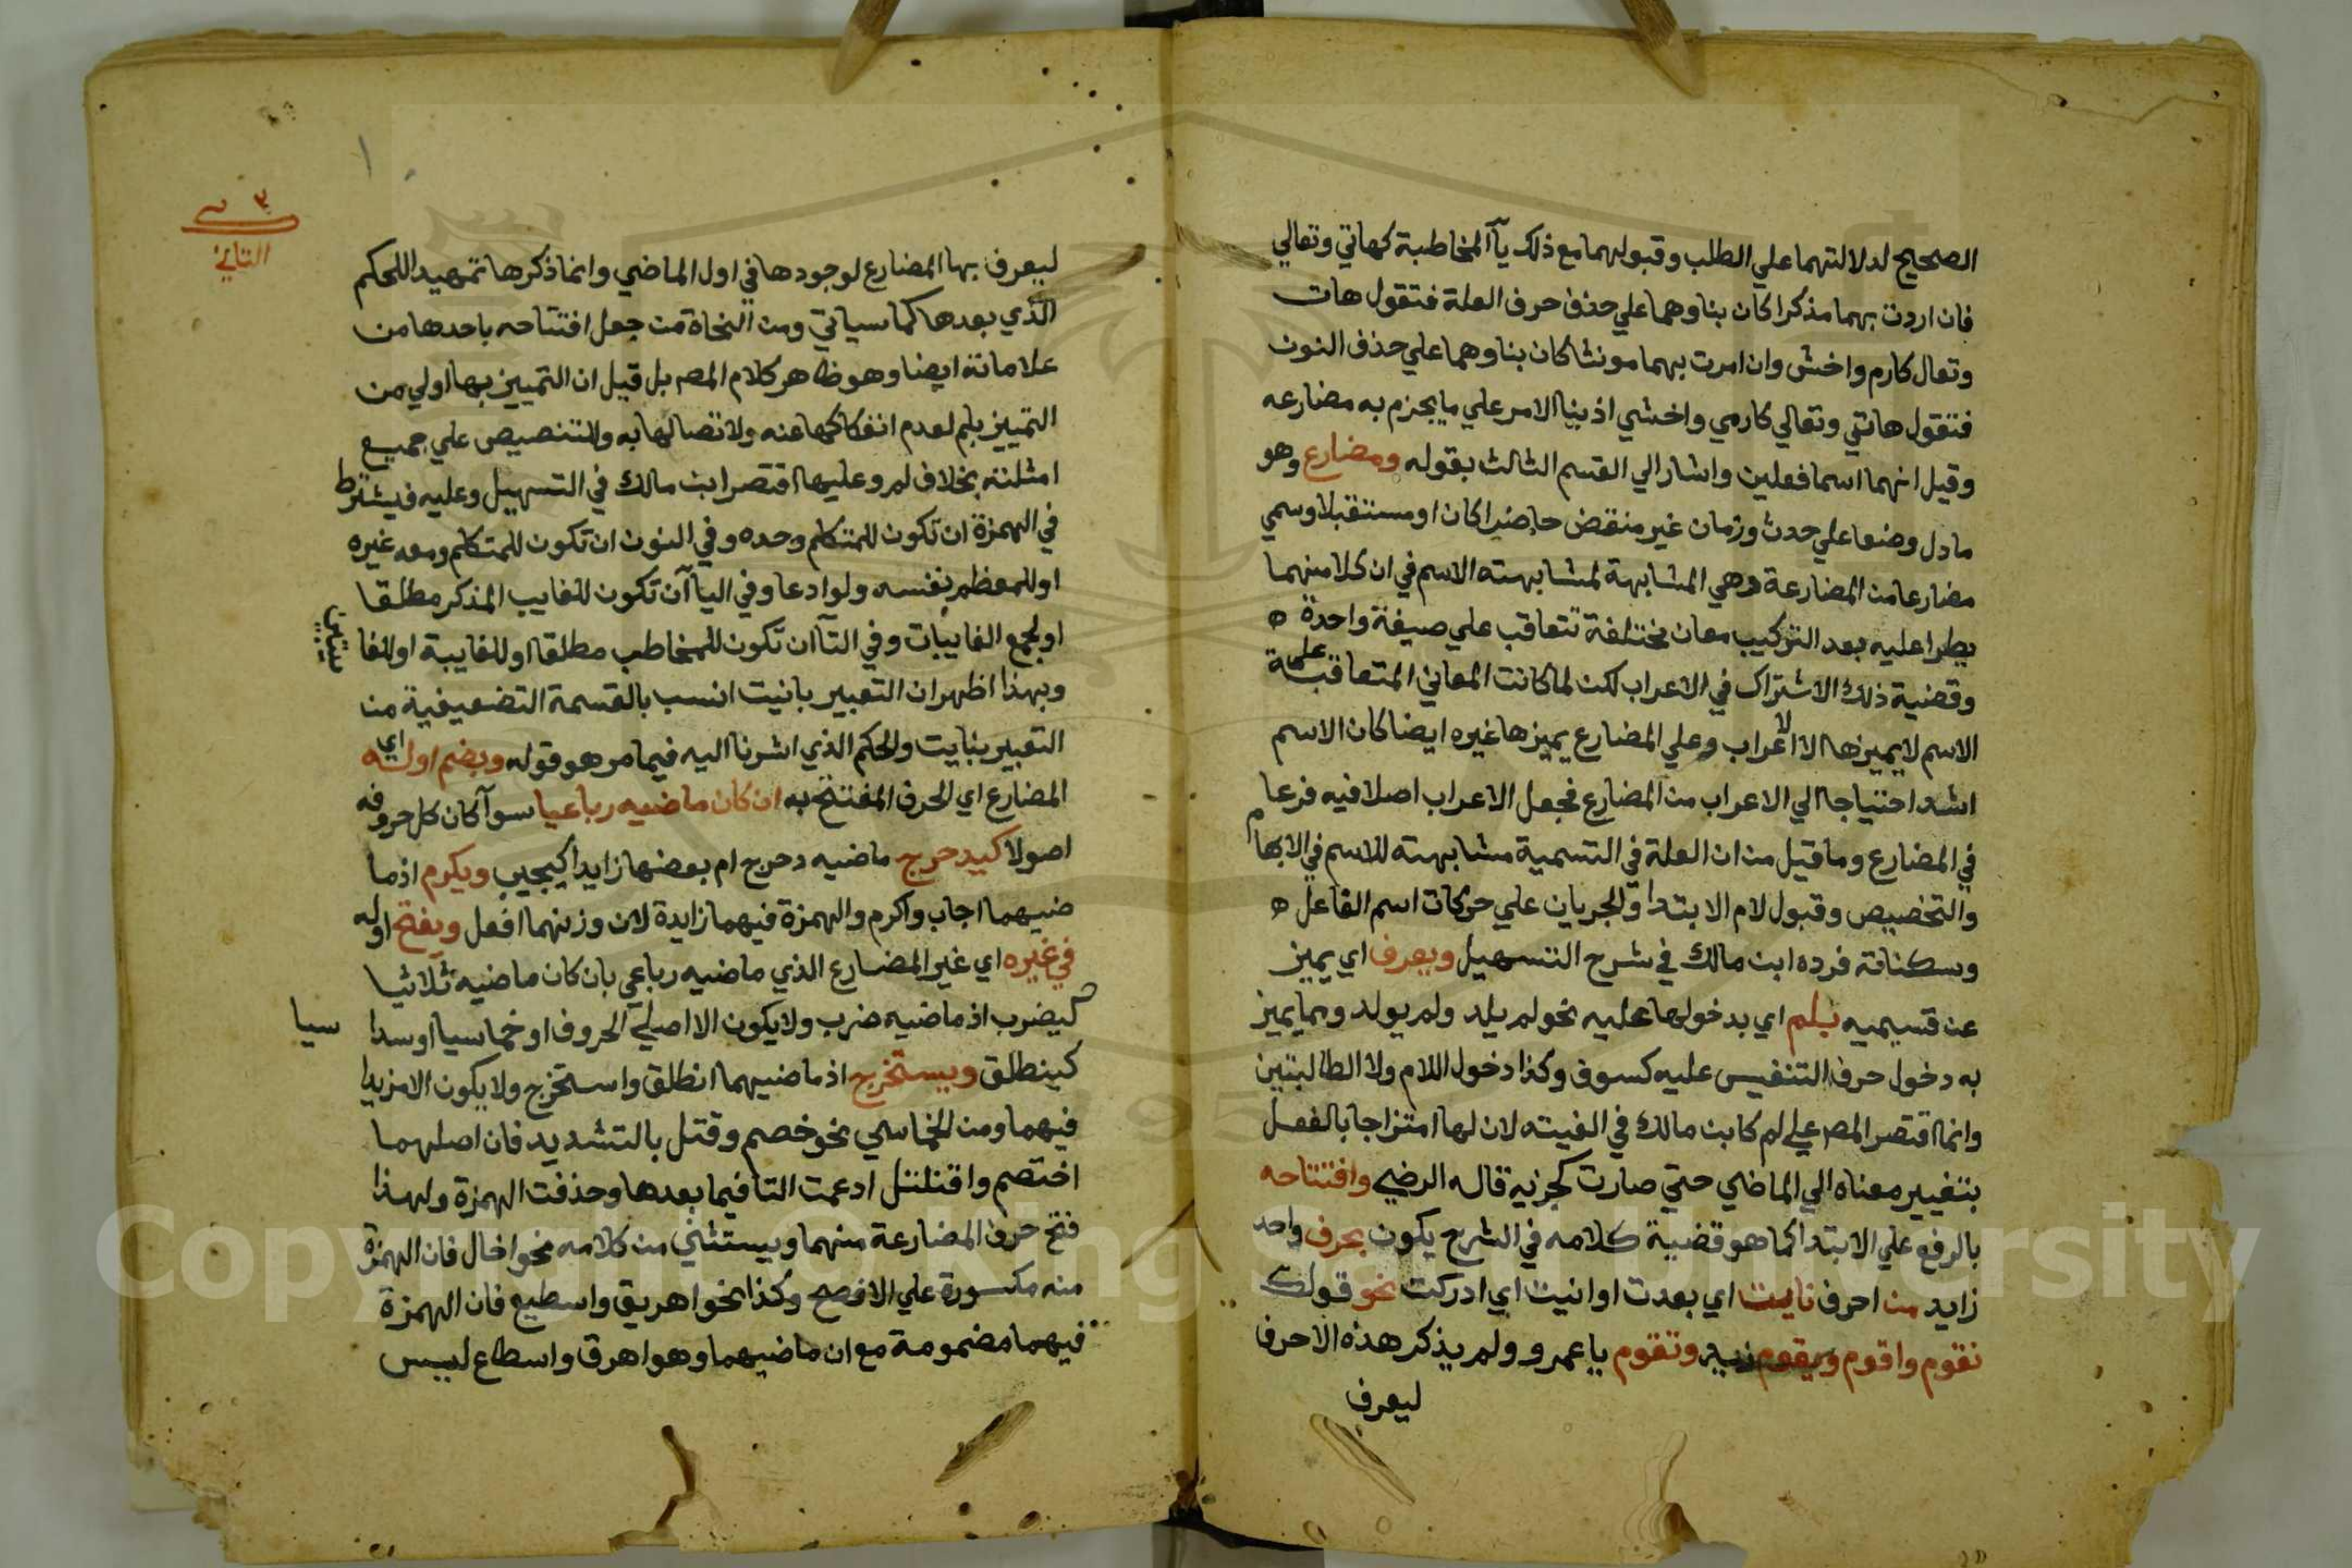 الصحيح لدلالتهما علي الطلب وقبولهما مع ذلك يآ المخاطبة كهاتي وتعالي
فان اردت بهما مذكرا كان بناوهما علي حذف حرف العلة فتقول هات
وتعال كارم واخش وان امرت بهما مونثا كان بناوهما علي حذف النون
فتقول هاتي وتعالي كارمي واخشي اذ بنا الامر علي ما يجزم به مضارعه
وقيل انهما اسما فعلين واشار الي القسم الثالث بقوله ومضارع وهو
ما دل وضعا علي حدث وزمان غير منقض حاضرا كان او مستقبلا وسمي
مضارعا من المضارعة وهي المشابهة لمشابهته الاسم في ان كلا منهما
يطرا عليه بعد التركيب معان مختلفة تتعاقب علي صيغة واحدة
وقضية ذلك الاشتراك في الاعراب لكن لما كانت المعاني المتعاقبة علي
الاسم لا يميزها الا الاعراب وعلي المضارع يميزها غيره ايضا كان الاسم
اشد احتياجا الي الاعراب من المضارع فجعل الاعراب اصلا فيه فرعا
في المضارع وما قيل من ان العلة في التسمية مشابهته للاسم في الابهام
والتخصيص وقبول لام الابتدا والجريان علي حركات اسم الفاعل
وسكناته فرده ابن مالك في شرح التسهيل ويعرف اي يميز
عن قسيميه بلم اي بدخولها عليه نحو لم يلد ولم يولد ومما يميز
به دخول حرف التنفيس عليه كسوف وكذا دخول اللام ولا الطالبتين
وانما اقتصر المص علي لم كابن مالك في الفيته لان لها امتزاجا بالفعل
بتغيير معناه الي الماضي حتي صارت كجزيه قاله الرضي وافتتاحه
بالرفع علي الابتدا كما هو قضية كلامه في الشرح يكون بحرف واحد
زايد من احرف نايت اي بعدت او انيت اي ادركت نحو قولك
نقوم واقوم ويقوم زيد وتقوم يا عمرو ولم يذكر هذه الاحرف
ليعرف
الثاني
ليعرف بها المضارع لوجودها في اول الماضي وانما ذكرها تمهيدا للحكم
الذي بعدها كما سياتي ومن النحاة من جعل افتتاحه باحدها من
علاماته ايضا وهو ظاهر كلام المص بل قيل ان التمييز بها اولي من
التمييز بلم لعدم انفكاكها عنه ولاتصالها به وللتنصيص علي جميع
امثلته بخلاف لم وعليها اقتصر ابن مالك في التسهيل وعليه فيشترط
في الهمزة ان تكون للمتكلم وحده وفي النون ان تكون للمتكلم ومعه غيره
او للمعظم نفسه ولو ادعا وفي اليا آن تكون للغايب المذكر مطلقا
او لجمع الغايبات وفي التا ان تكون للمخاطب مطلقا او للغايبة او للغا
يبتين
وبهذا اظهر ان التعبير بانيت انسب بالقسمة التضعيفية من
التعبير بنايت والحكم الذي اشرنا اليه فيما مر هو قوله ويضم اوله اي
المضارع اي الحرف المفتتح به ان كان ماضيه رباعيا سوآ كان كل حروفه
اصولا كيدحرج ماضيه دحرج ام بعضها زايدا كيجيب ويكرم اذ ما
ضيهما اجاب واكرم والهمزة فيهما زايدة لان وزنهما افعل ويفتح اوله
في غيره اي غير المضارع الذي ماضيه رباعي بان كان ماضيه ثلاثيا
كيضرب اذ ماضيه ضرب ولا يكون الا اصلي الحروف او خماسيا او سدا سيا
كينطلق ويستخرج اذ ماضيهما انطلق واستخرج ولا يكون الا مزيدا
فيهما ومن الخماسي نحو خصم وقتل بالتشديد فان اصلهما
اختصم واقتتل ادغمت التا فيما بعدها وحذفت الهمزة ولهذا
فتح حرف المضارعة منهما ويستثني من كلامه نحو اخال فان الهمزة
منه مكسورة علي الافصح وكذا نحو اهريق واسطيع فان الهمزة
فيهما مضمومة مع ان ماضيهما وهو اهرق واسطاع ليس
Copyright © King Saud University